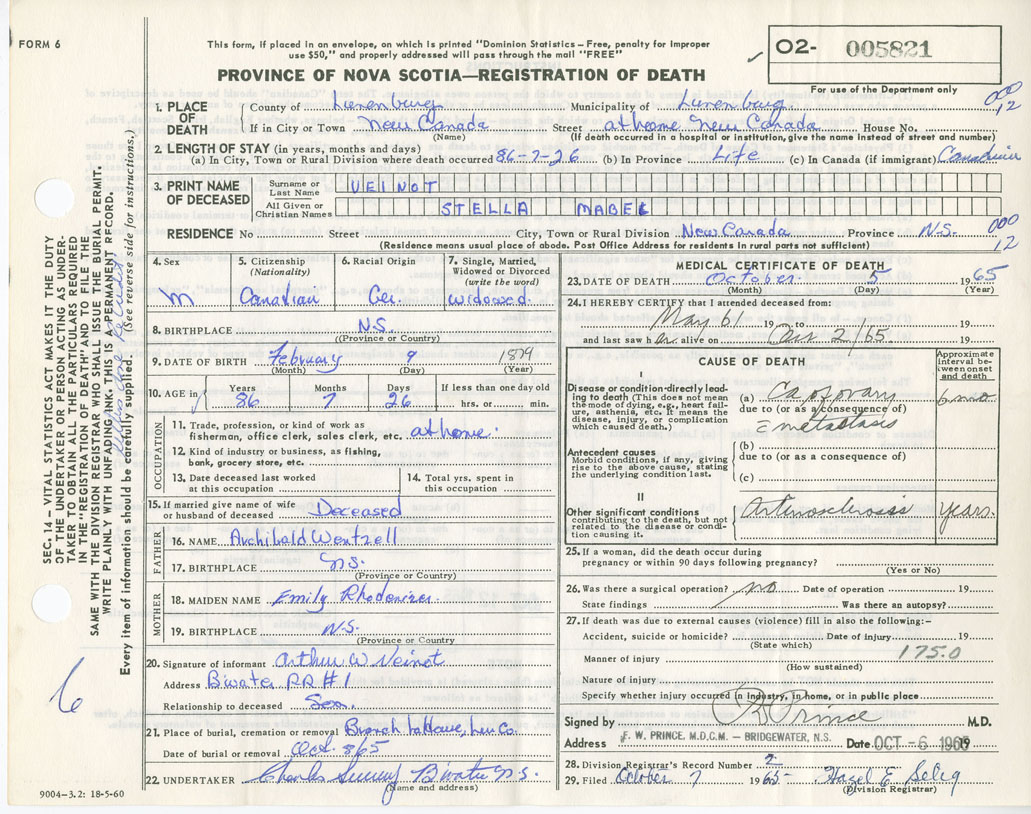 FORM 6
This form, if placed in an envelope, on which is printed "Dominion Statistics – Free, penalty for improper
use $50," and properly addressed will pass through the mail "FREE"
PROVINCE OF NOVA SCOTIA—REGISTRATION OF DEATH
O2- 005821
For use of the Department only
1. PLACE OF DEATH
County of Lunenburg Municipality of Lunenburg
If in City or Town New Canada Street at home New Canada House No.
(Name) (If death occurred in a hospital or institution, give the name instead of street and number)
000
12
2. LENGTH OF STAY (in years, months and days)
(a) In City, Town or Rural Division where death occurred 86-7-26 (b) In Province Life (c) In Canada (if immigrant) Canadian
3. PRINT NAME OF DECEASED
Surname or Last Name VEINOT
All Given or Christian Names STELLA MABEL
RESIDENCE No Street City, Town or Rural Division New Canada Province N.S.
000
12
(Residence means usual place of abode. Post Office Address for residents in rural parts not sufficient)
4. Sex m
5. Citizenship (Nationality) Canadian
6. Racial Origin Ger.
7. Single, Married, Widowed or Divorced (write the word) Widowed.
8. BIRTHPLACE N.S.
(Province or Country)
9. DATE OF BIRTH February 9 1879
(Month) (Day) (Year)
10. AGE in Years 86 Months 7 Days 26 If less than one day old hrs. or min.
OCCUPATION
11. Trade, profession, or kind of work as
fisherman, office clerk, sales clerk, etc. at home.
12. Kind of industry or business, as fishing,
bank, grocery store, etc.
13. Date deceased last worked at this occupation
14. Total yrs. spent in this occupation
15. If married give name of wife
or husband of deceased Deceased
FATHER
16. NAME Archibald Wentzell
17. BIRTHPLACE N.S.
(Province or Country)
MOTHER
18. MAIDEN NAME Emily Rhodenizer
19. BIRTHPLACE N.S.
(Province or Country)
20. Signature of informant Arthur W Veinot
Address B'water RR #1
Relationship to deceased Son.
21. Place of burial, cremation or removal Branch LaHave, Lun Co.
Date of burial or removal Oct. 8 65
22. UNDERTAKER Charles B'water N.S.
(Name and address)
9004–3.2: 18-5-60
MEDICAL CERTIFICATE OF DEATH
23. DATE OF DEATH October 5 1965
(Month) (Day) (Year)
24. I HEREBY CERTIFY that I attended deceased from:
May 61 19 to 19
and last saw h alive on 2/65 19
CAUSE OF DEATH
Approximate interval between onset and death
I
Disease or condition directly leading to death (This does not mean the mode of dying, e.g., heart failure, asthenia, etc. It means the disease, injury, or complication which caused death.)
(a) Ca ovary 6 mo
due to (or as a consequence of)
c̄ metastasis
Antecedent causes
Morbid conditions, if any, giving rise to the above cause, stating the underlying condition last.
(b)
due to (or as a consequence of)
(c)
II
Other significant conditions
contributing to the death, but not related to the disease or condition causing it.
Arteriosclerosis years.
25. If a woman, did the death occur during
pregnancy or within 90 days following pregnancy?
(Yes or No)
26. Was there a surgical operation? no Date of operation 19
State findings Was there an autopsy?
27. If death was due to external causes (violence) fill in also the following:–
Accident, suicide or homicide? Date of injury 19
(State which)
175.0
Manner of injury
(How sustained)
Nature of injury
Specify whether injury occurred in industry, in home, or in public place
Signed by Prince M.D.
Address F. W. PRINCE, M.D.C.M. – BRIDGEWATER, N.S. Date OCT -6 1965
28. Division Registrar's Record Number 2
29. Filed October 7 1965 Hazel E Selig
(Division Registrar)
SEC. 14 – VITAL STATISTICS ACT MAKES IT THE DUTY
OF THE UNDERTAKER OR PERSON ACTING AS UNDER-
TAKER TO OBTAIN ALL THE PARTICULARS REQUIRED
IN THE "REGISTRATION OF DEATH" AND FILE THE
SAME WITH THE DIVISION REGISTRAR WHO SHALL ISSUE THE BURIAL PERMIT.
WRITE PLAINLY WITH UNFADING INK. THIS IS A PERMANENT RECORD.
Every item of information should be carefully supplied. (See reverse side for instructions.)
6